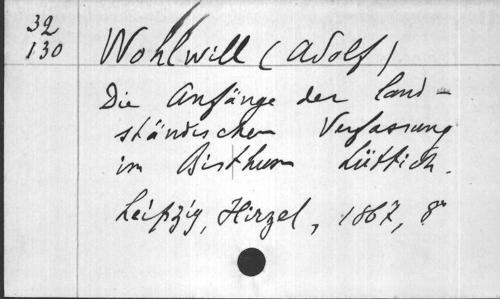 32
130
Wohlwill (Adolf)
Die Anfänge der land-
ständischen Verfassung
im Bisthum Lüttich.
Leipzig, Hirzel, 1867, 8°